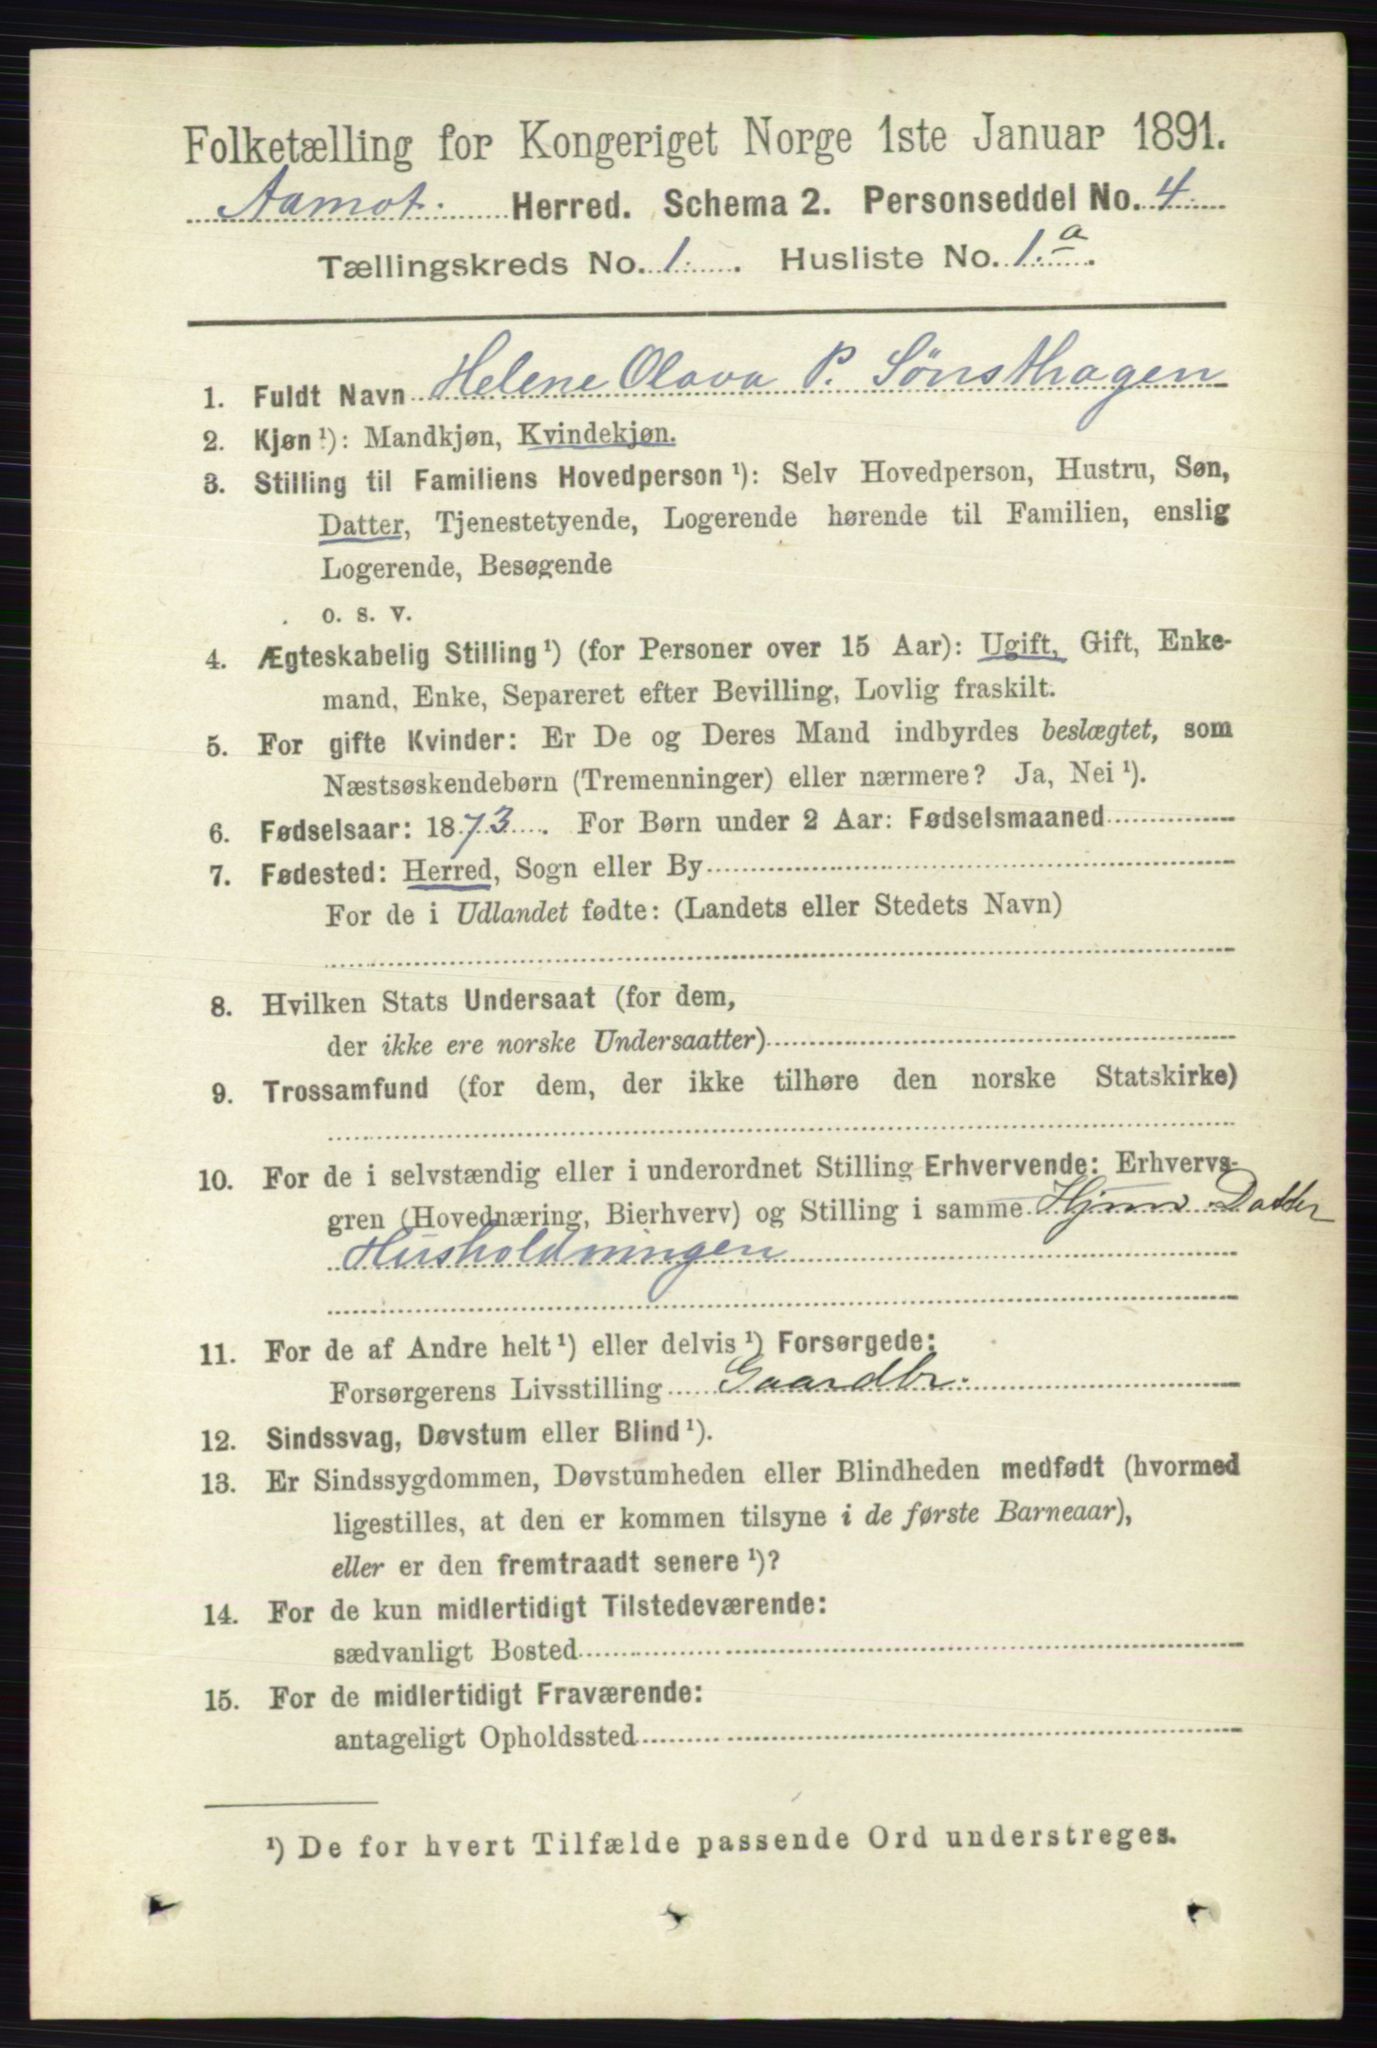 Folketælling for Kongeriget Norge 1ste Januar 1891.
Aamot. Herred. Schema 2. Personseddel No. 4.
Tællingskreds No. 1. Husliste No. 1.a
1. Fuldt Navn Helene Olava P. Sønsthagen
2. Kjøn ¹): Mandkjøn, Kvindekjøn.
3. Stilling til Familiens Hovedperson ¹): Selv Hovedperson, Hustru, Søn,
Datter, Tjenestetyende, Logerende hørende til Familien, enslig
Logerende, Besøgende
o. s. v.
4. Ægteskabelig Stilling ¹) (for Personer over 15 Aar): Ugift, Gift, Enke-
mand, Enke, Separeret efter Bevilling, Lovlig fraskilt.
5. For gifte Kvinder: Er De og Deres Mand indbyrdes beslægtet, som
Næstsøskendebørn (Tremenninger) eller nærmere? Ja, Nei ¹).
6. Fødselsaar: 1873. For Børn under 2 Aar: Fødselsmaaned
7. Fødested: Herred, Sogn eller By
For de i Udlandet fødte: (Landets eller Stedets Navn)
8. Hvilken Stats Undersaat (for dem,
der ikke ere norske Undersaatter)
9. Trossamfund (for dem, der ikke tilhøre den norske Statskirke)
10. For de i selvstændig eller i underordnet Stilling Erhvervende: Erhvervs-
gren (Hovednæring, Bierhverv) og Stilling i samme Hjmv. Datter
Husholdningen
11. For de af Andre helt ¹) eller delvis ¹) Forsørgede:
Forsørgerens Livsstilling Gaardbr.
12. Sindssvag, Døvstum eller Blind ¹).
13. Er Sindssygdommen, Døvstumheden eller Blindheden medfødt (hvormed
ligestilles, at den er kommen tilsyne i de første Barneaar),
eller er den fremtraadt senere ¹)?
14. For de kun midlertidigt Tilstedeværende:
sædvanligt Bosted
15. For de midlertidigt Fraværende:
antageligt Opholdssted
¹) De for hvert Tilfælde passende Ord understreges.